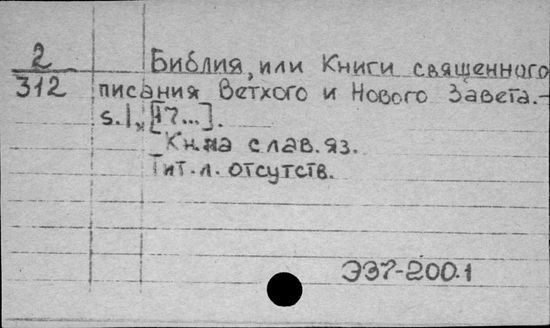 2
312
Библия, или Книги священного
писания Ветхого и Нового Завета.-
s.l., [17...].
Кн. на слав. яз.
Тит. л. отсутств.
Э37-200.1